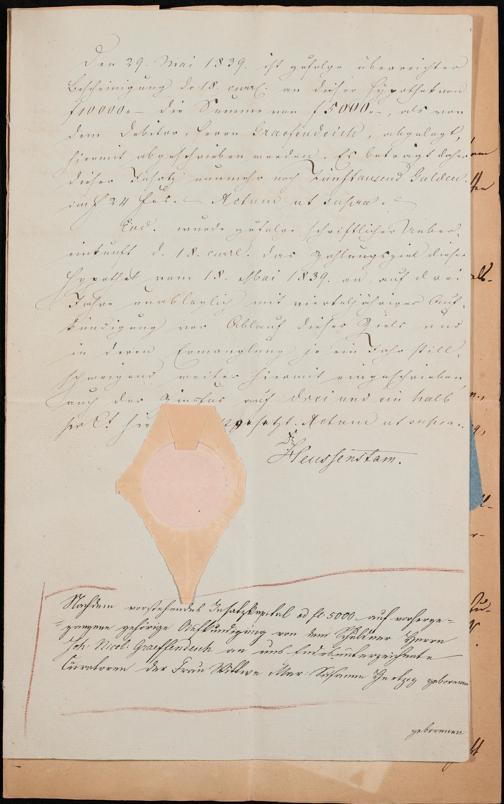 Den 29. Mai 1839. ist zufolge überreichter
Bescheinigung de 18. curr. an dieser Hypothek von
f 10000.– die Summe von f 5000.–, als von
dem Debitor, Herrn Graeffendeich, abgelegt,
hiermit abgeschrieben worden. Es beträgt daher
dieser Insatz nunmehr noch Fünftausend Gulden
im f 24 Fus. Actum ut supra.
Eod. wurde zufolge schriftlicher Ueber-
einkunft d. 18. curr. das Zahlungsziel dieser
Hypothek vom 18. Mai 1839. an auf drei
Jahre unablöslich mit vierteljähriger Auf-
kündigung vor Ablauf dieses Ziels und
in deren Ermanglung je ein Jahr still-
schweigend weiter hiermit eingeschrieben,
auch der Zinsfus auf drei und ein halb
per Ct. gesetzt. Actum ut supra.
Heussenstam.
Nachdem vorstehendes Insatzkapital ad fl. 5000.– auf vorherge-
gangene gehörige Aufkündigung von dem Schuldner Herrn
Joh. Nicol. Graeffendeich an uns Endesunterzeichnete
Curatoren der Frau Wittwe Mar. Susanna Hertzog geborenen
geborenen